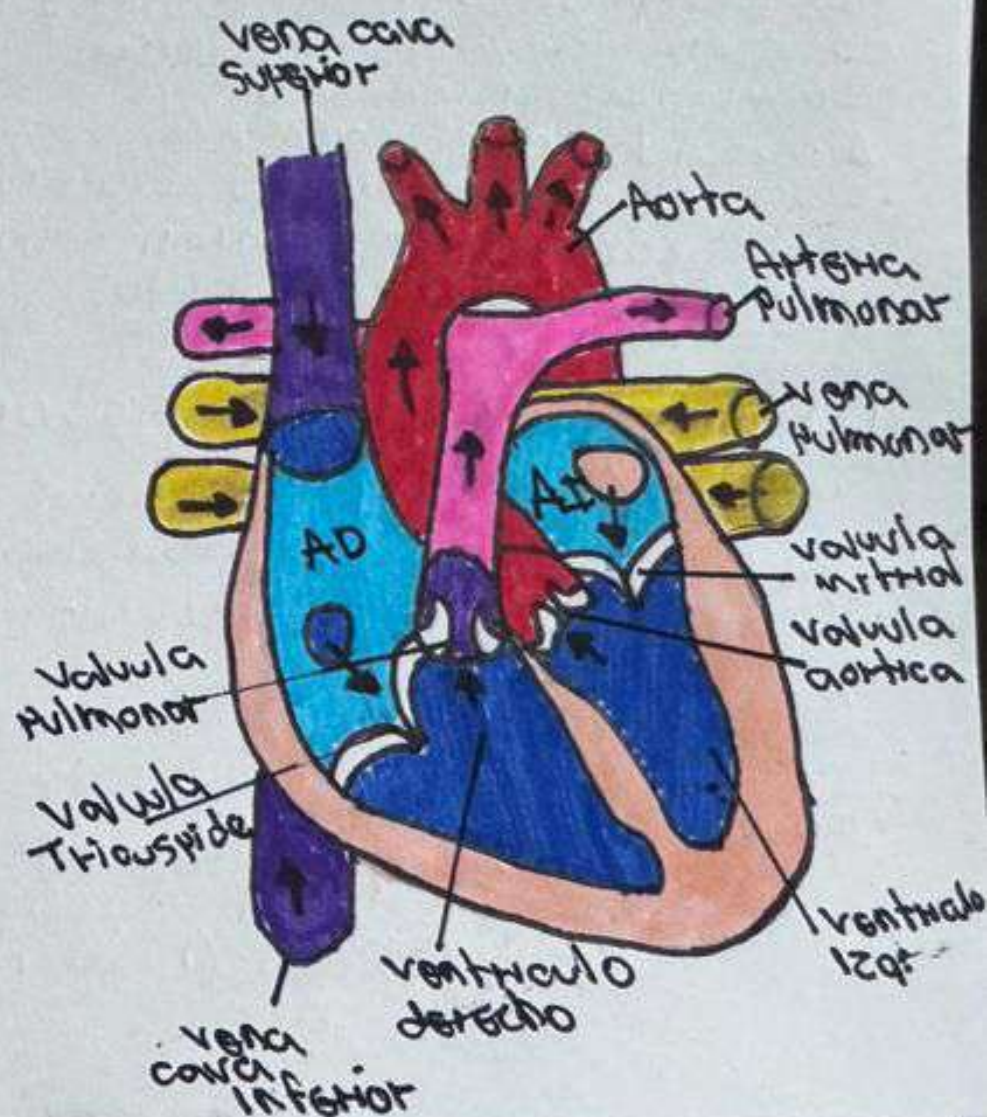 vena cava
Superior
Aorta
Arteria
Pulmonar
vena
Pulmonar
AD
AI
valvula
mitral
valvula
aortica
valvula
Pulmonar
valvula
Tricuspide
ventriculo
derecho
ventriculo
Izq.
vena
cava
Inferior